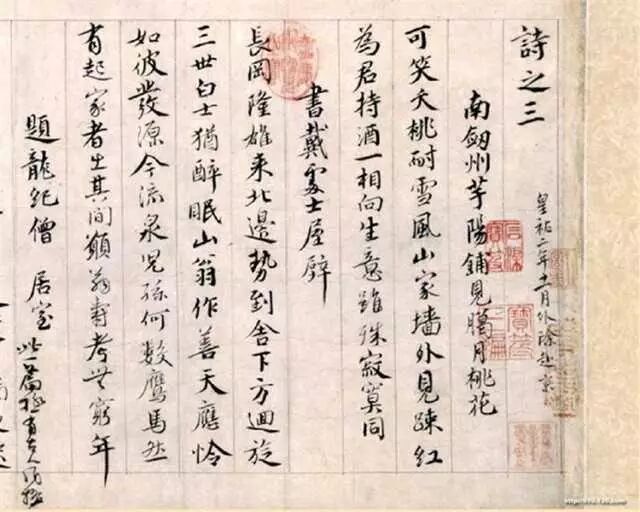 詩之三
皇祐二年十一月外除赴京
南劔州芋陽鋪見臈月桃花
可笑夭桃耐雪風山家墻外見踈紅
為君持酒一相向生意雖殊寂寞同
書戴處士屋壁
長岡隆雄來北邊勢到舍下方迴旋
三世白士猶醉眠山翁作善天應憐
如彼發源今流泉兒孫何數鷹馬然
有起家者出其間願翁壽考無窮年
題龍紀僧居室
此一篇極有古人風格